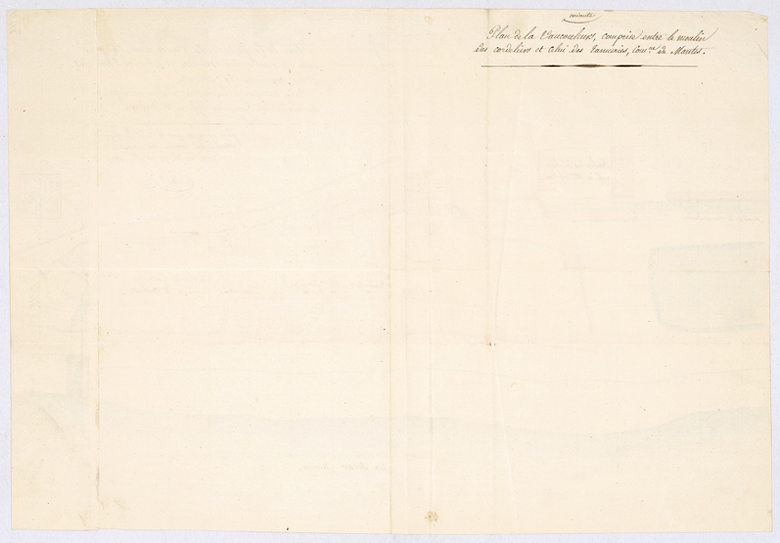 minute
Plan de la Vaucouleurs, comprise entre le moulin
des cordeliers et celui des Tanneries, Com.ne de Mantes.